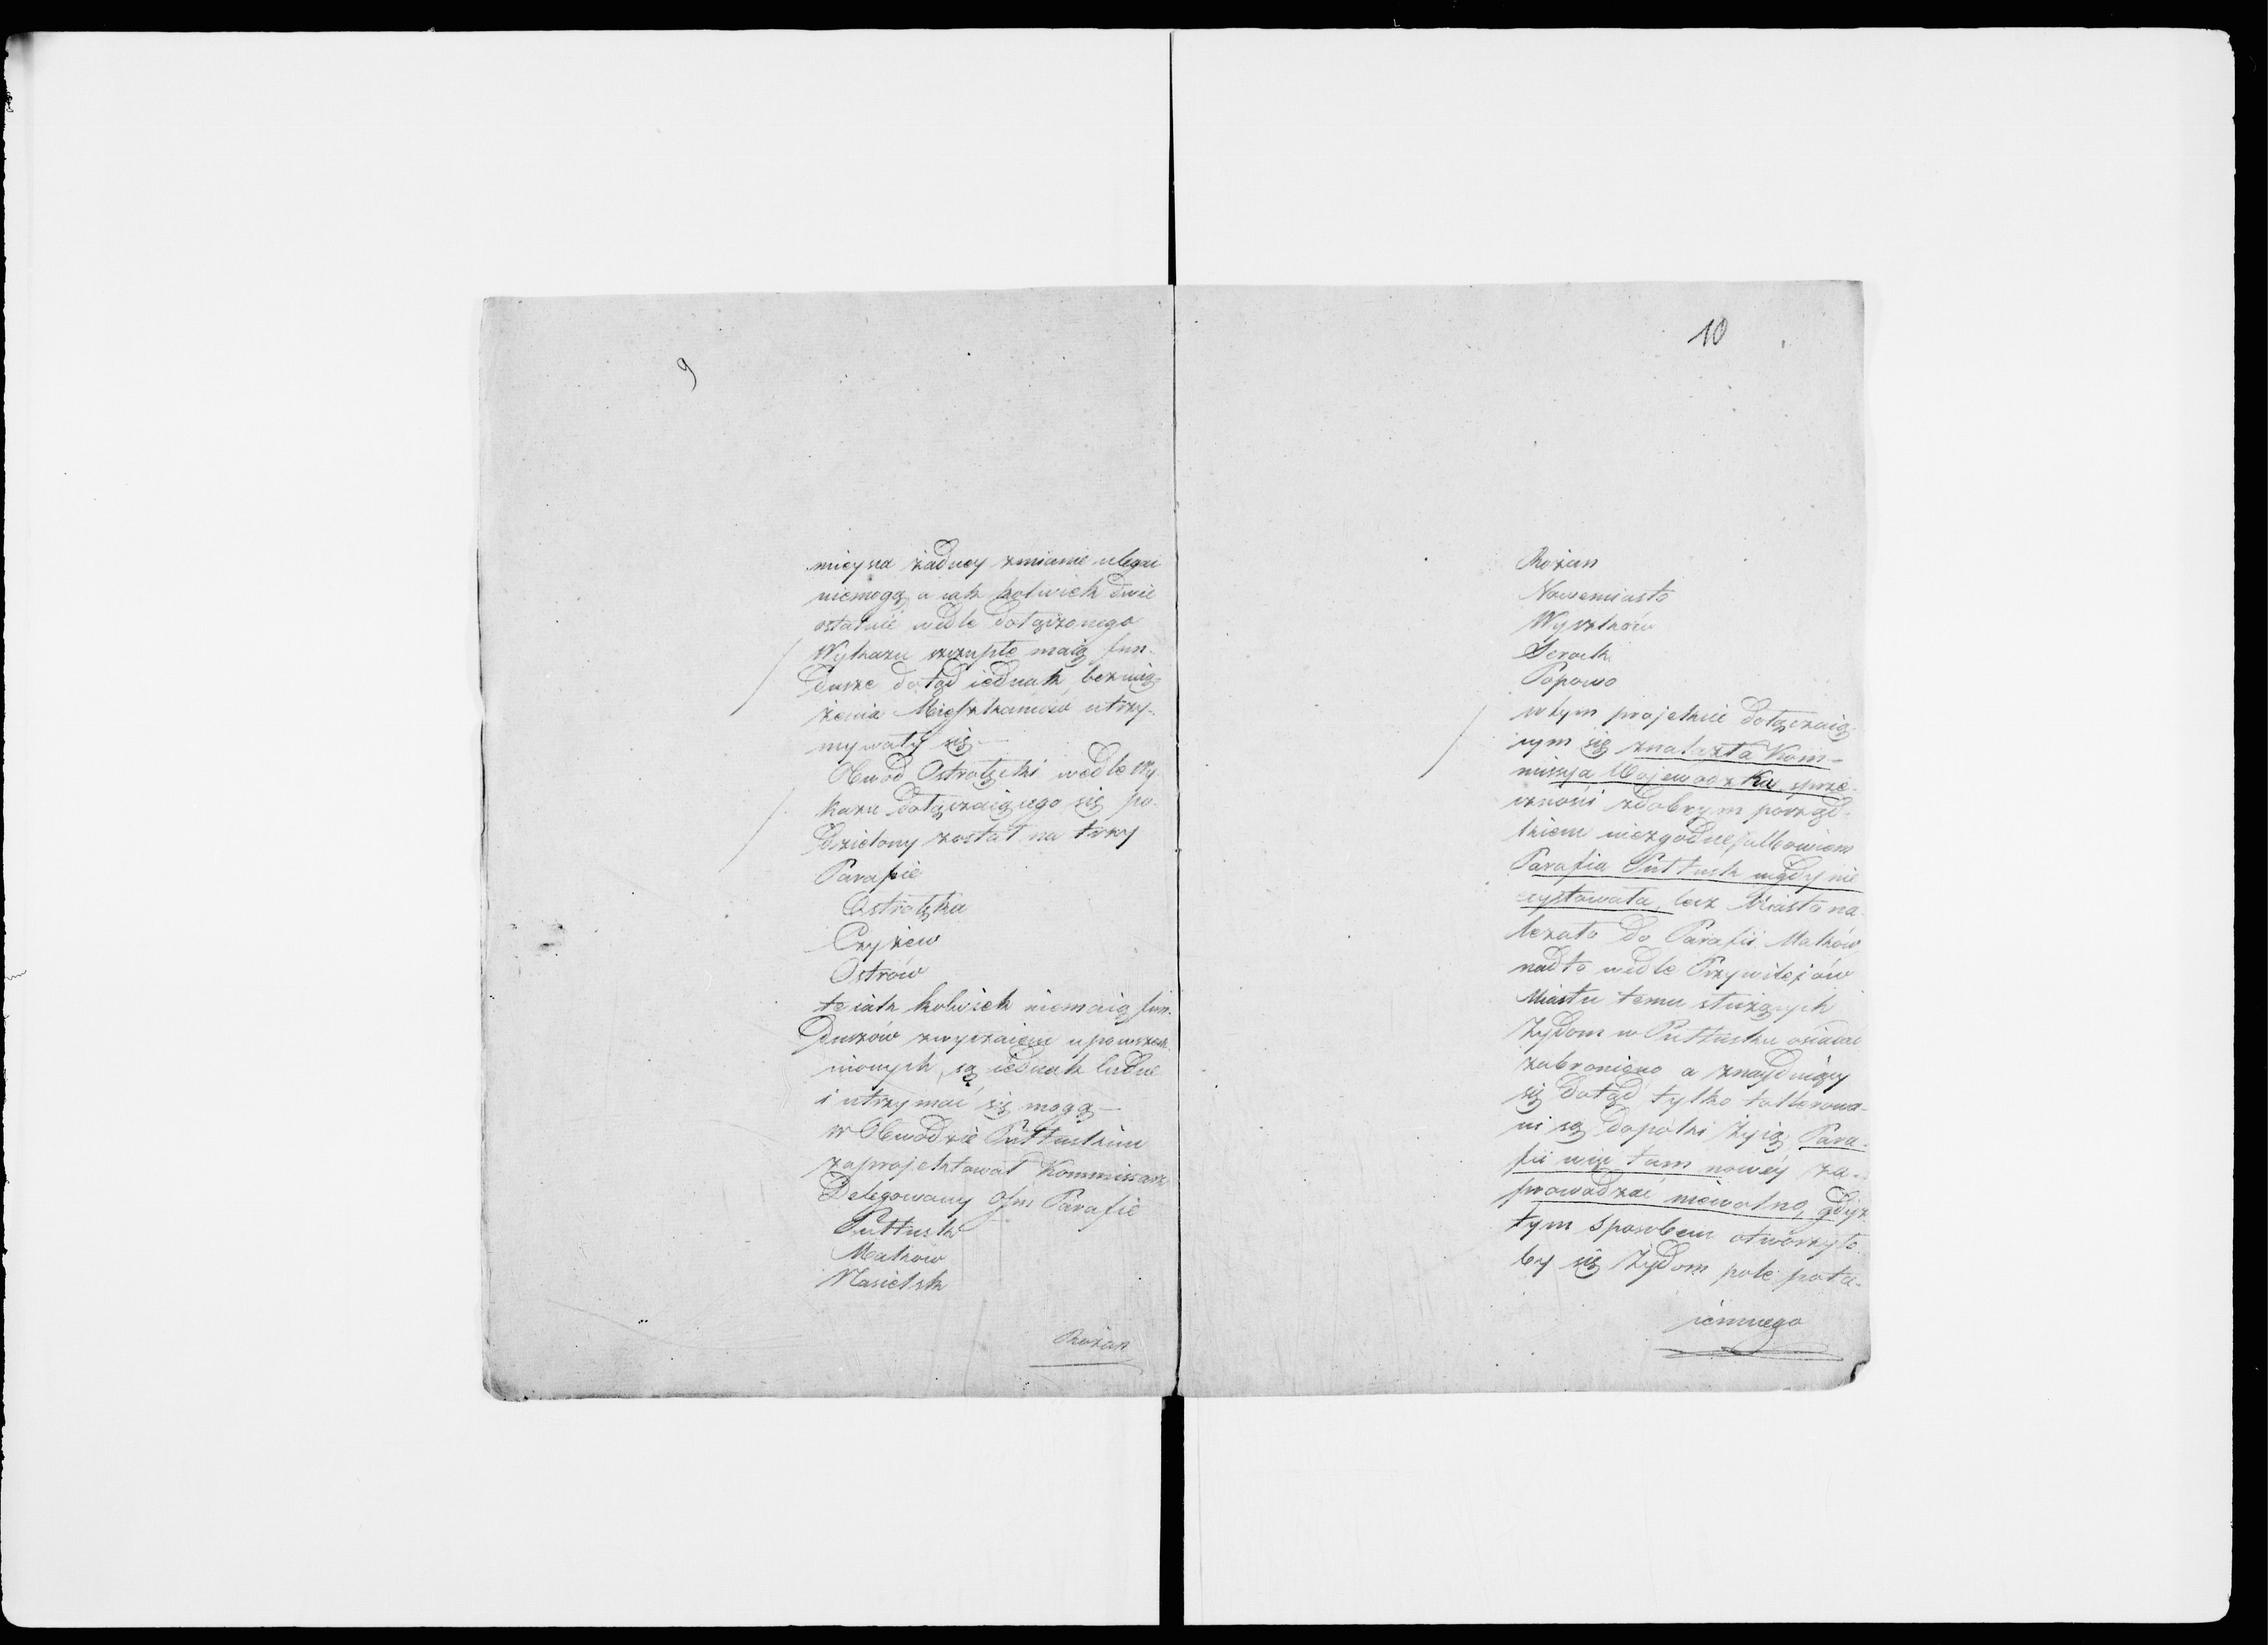 9
mieysca żadney zmianie uledz
niemogą a iak kolwiek dwie
ostatnie wedle dołączonego
Wykazu szczupłe maią fun-
dusze dotąd iednak bez uciążenia
Mieszkańców utrzy-
mywały się —
Obwód Ostrołęcki wedle Wy-
kazu dołączaiącego się po-
dzielony został na trzy
Parafie
Ostrołęka
Czyżew
Ostrów
te iak kolwiek niemaią fun-
duszów zwyczaiem upowszech-
nionych, są iednak ludne
i utrzymać się mogą —
w Obwodzie Pułtuskim
zaprojektował Kommissarz
Delegowany Ośm Parafie
Pułtusk
Maków
Nasielsk
Rożan
10
Rożan
Nowemiasto
Wyszków
Serock
Popowo
w tym projekcie dołączaią-
cym się znalazła Kom-
missya Wojewodzka sprze-
czności z dobrym porząd-
kiem niezgodne, albowiem
Parafia Pułtusk nigdy nie
exystowała, lecz Miasto na-
leżało do Parafii Maków
nadto wedle Przywilejów
Miastu temu służących
Żydom w Pułtusku osiadać
zabroniono a znayduiący
się dotąd tylko tollerowa-
ni są dopóki żyią, Para-
fii więc tam nowéy za-
prowadzać niewolno, gdyż
tym sposobem otworzyło-
by się Żydom pole pota-
iemnego